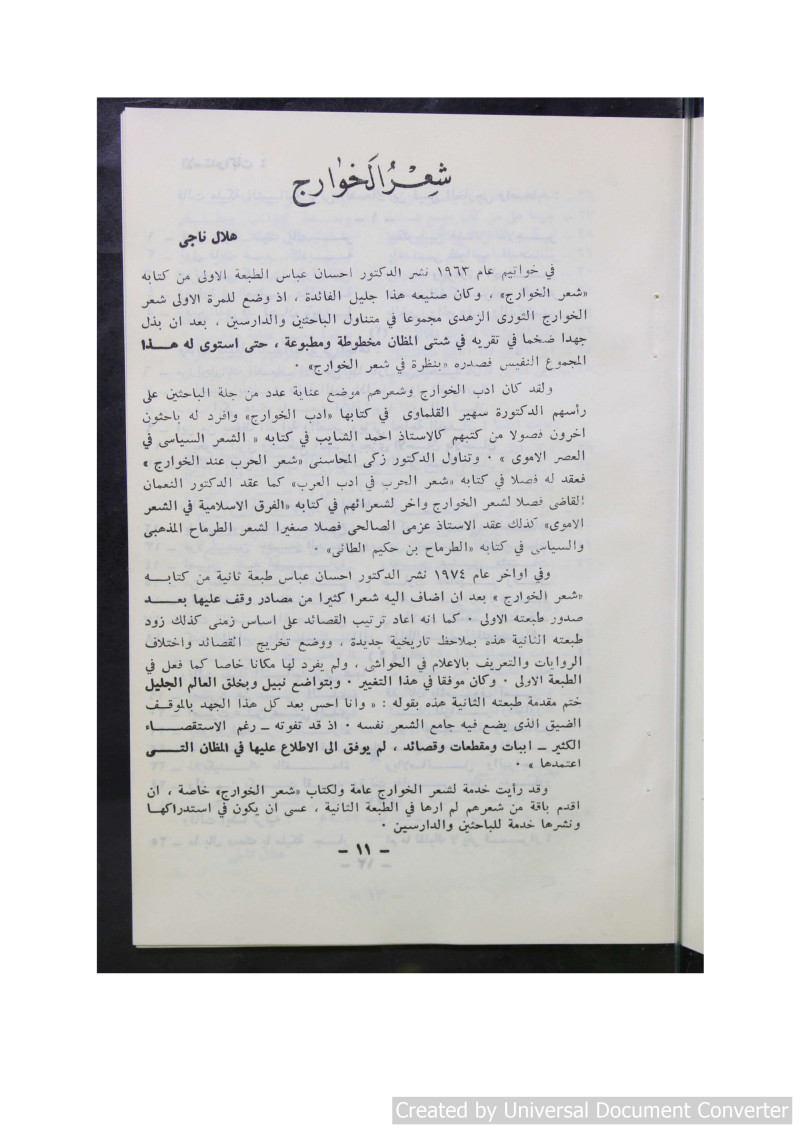 شِعْرُ الخَوارج
هلال ناجى
في خواتيم عام ١٩٦٣ نشر الدكتور احسان عباس الطبعة الاولى من كتابه
«شعر الخوارج» ، وكان صنيعه هذا جليل الفائدة ، اذ وضع للمرة الاولى شعر
الخوارج الثورى الزهدى مجموعا في متناول الباحثين والدارسين ، بعد ان بذل
جهدا ضخما في تقريه في شتى المظان مخطوطة ومطبوعة ، حتى استوى له هـــذا
المجموع النفيس فصدره «بنظرة في شعر الخوارج» ٠
ولقد كان ادب الخوارج وشعرهم موضع عناية عدد من جلة الباحثين على
رأسهم الدكتورة سهير القلماوى في كتابها «ادب الخوارج» وافرد له باحثون
اخرون فصولا من كتبهم كالاستاذ احمد الشايب في كتابه « الشعر السياسى في
العصر الاموى » ٠ وتناول الدكتور زكى المحاسنى «شعر الحرب عند الخوارج »
فعقد له فصلا في كتابه «شعر الحرب في ادب العرب» كما عقد الدكتور النعمان
القاضى فصلا لشعر الخوارج واخر لشعرائهم في كتابه «الفرق الاسلامية في الشعر
الاموى» كذلك عقد الاستاذ عزمى الصالحى فصلا صغيرا لشعر الطرماح المذهبى
والسياسى في كتابه «الطرماح بن حكيم الطائى» ٠
وفي اواخر عام ١٩٧٤ نشر الدكتور احسان عباس طبعة ثانية من كتابـــه
«شعر الخوارج » بعد ان اضاف اليه شعرا كثيرا من مصادر وقف عليها بعـــد
صدور طبعته الاولى ٠ كما انه اعاد ترتيب القصائد على اساس زمنى كذلك زود
طبعته الثانية هذه بملاحظ تاريخية جديدة ، ووضع تخريج القصائد واختلاف
الروايات والتعريف بالاعلام في الحواشى ، ولم يفرد لها مكانا خاصا كما فعل في
الطبعة الاولى ٠ وكان موفقا في هذا التغيير ٠ وبتواضع نبيل وبخلق العالم الجليل
ختم مقدمة طبعته الثانية هذه بقوله : « وانا احس بعد كل هذا الجهد بالموقــف
الضيق الذى يضع فيه جامع الشعر نفسه ٠ اذ قد تفوته ــ رغم الاستقصـــاء
الكثير ــ ابيات ومقطعات وقصائد ، لم يوفق الى الاطلاع عليها في المظان التـــى
اعتمدها » ٠
وقد رأيت خدمة لشعر الخوارج عامة ولكتاب «شعر الخوارج» خاصة ، ان
اقدم باقة من شعرهم لم ارها في الطبعة الثانية ، عسى ان يكون في استدراكهـا
ونشرها خدمة للباحثين والدارسين ٠
– ١١ –
Created by Universal Document Converter